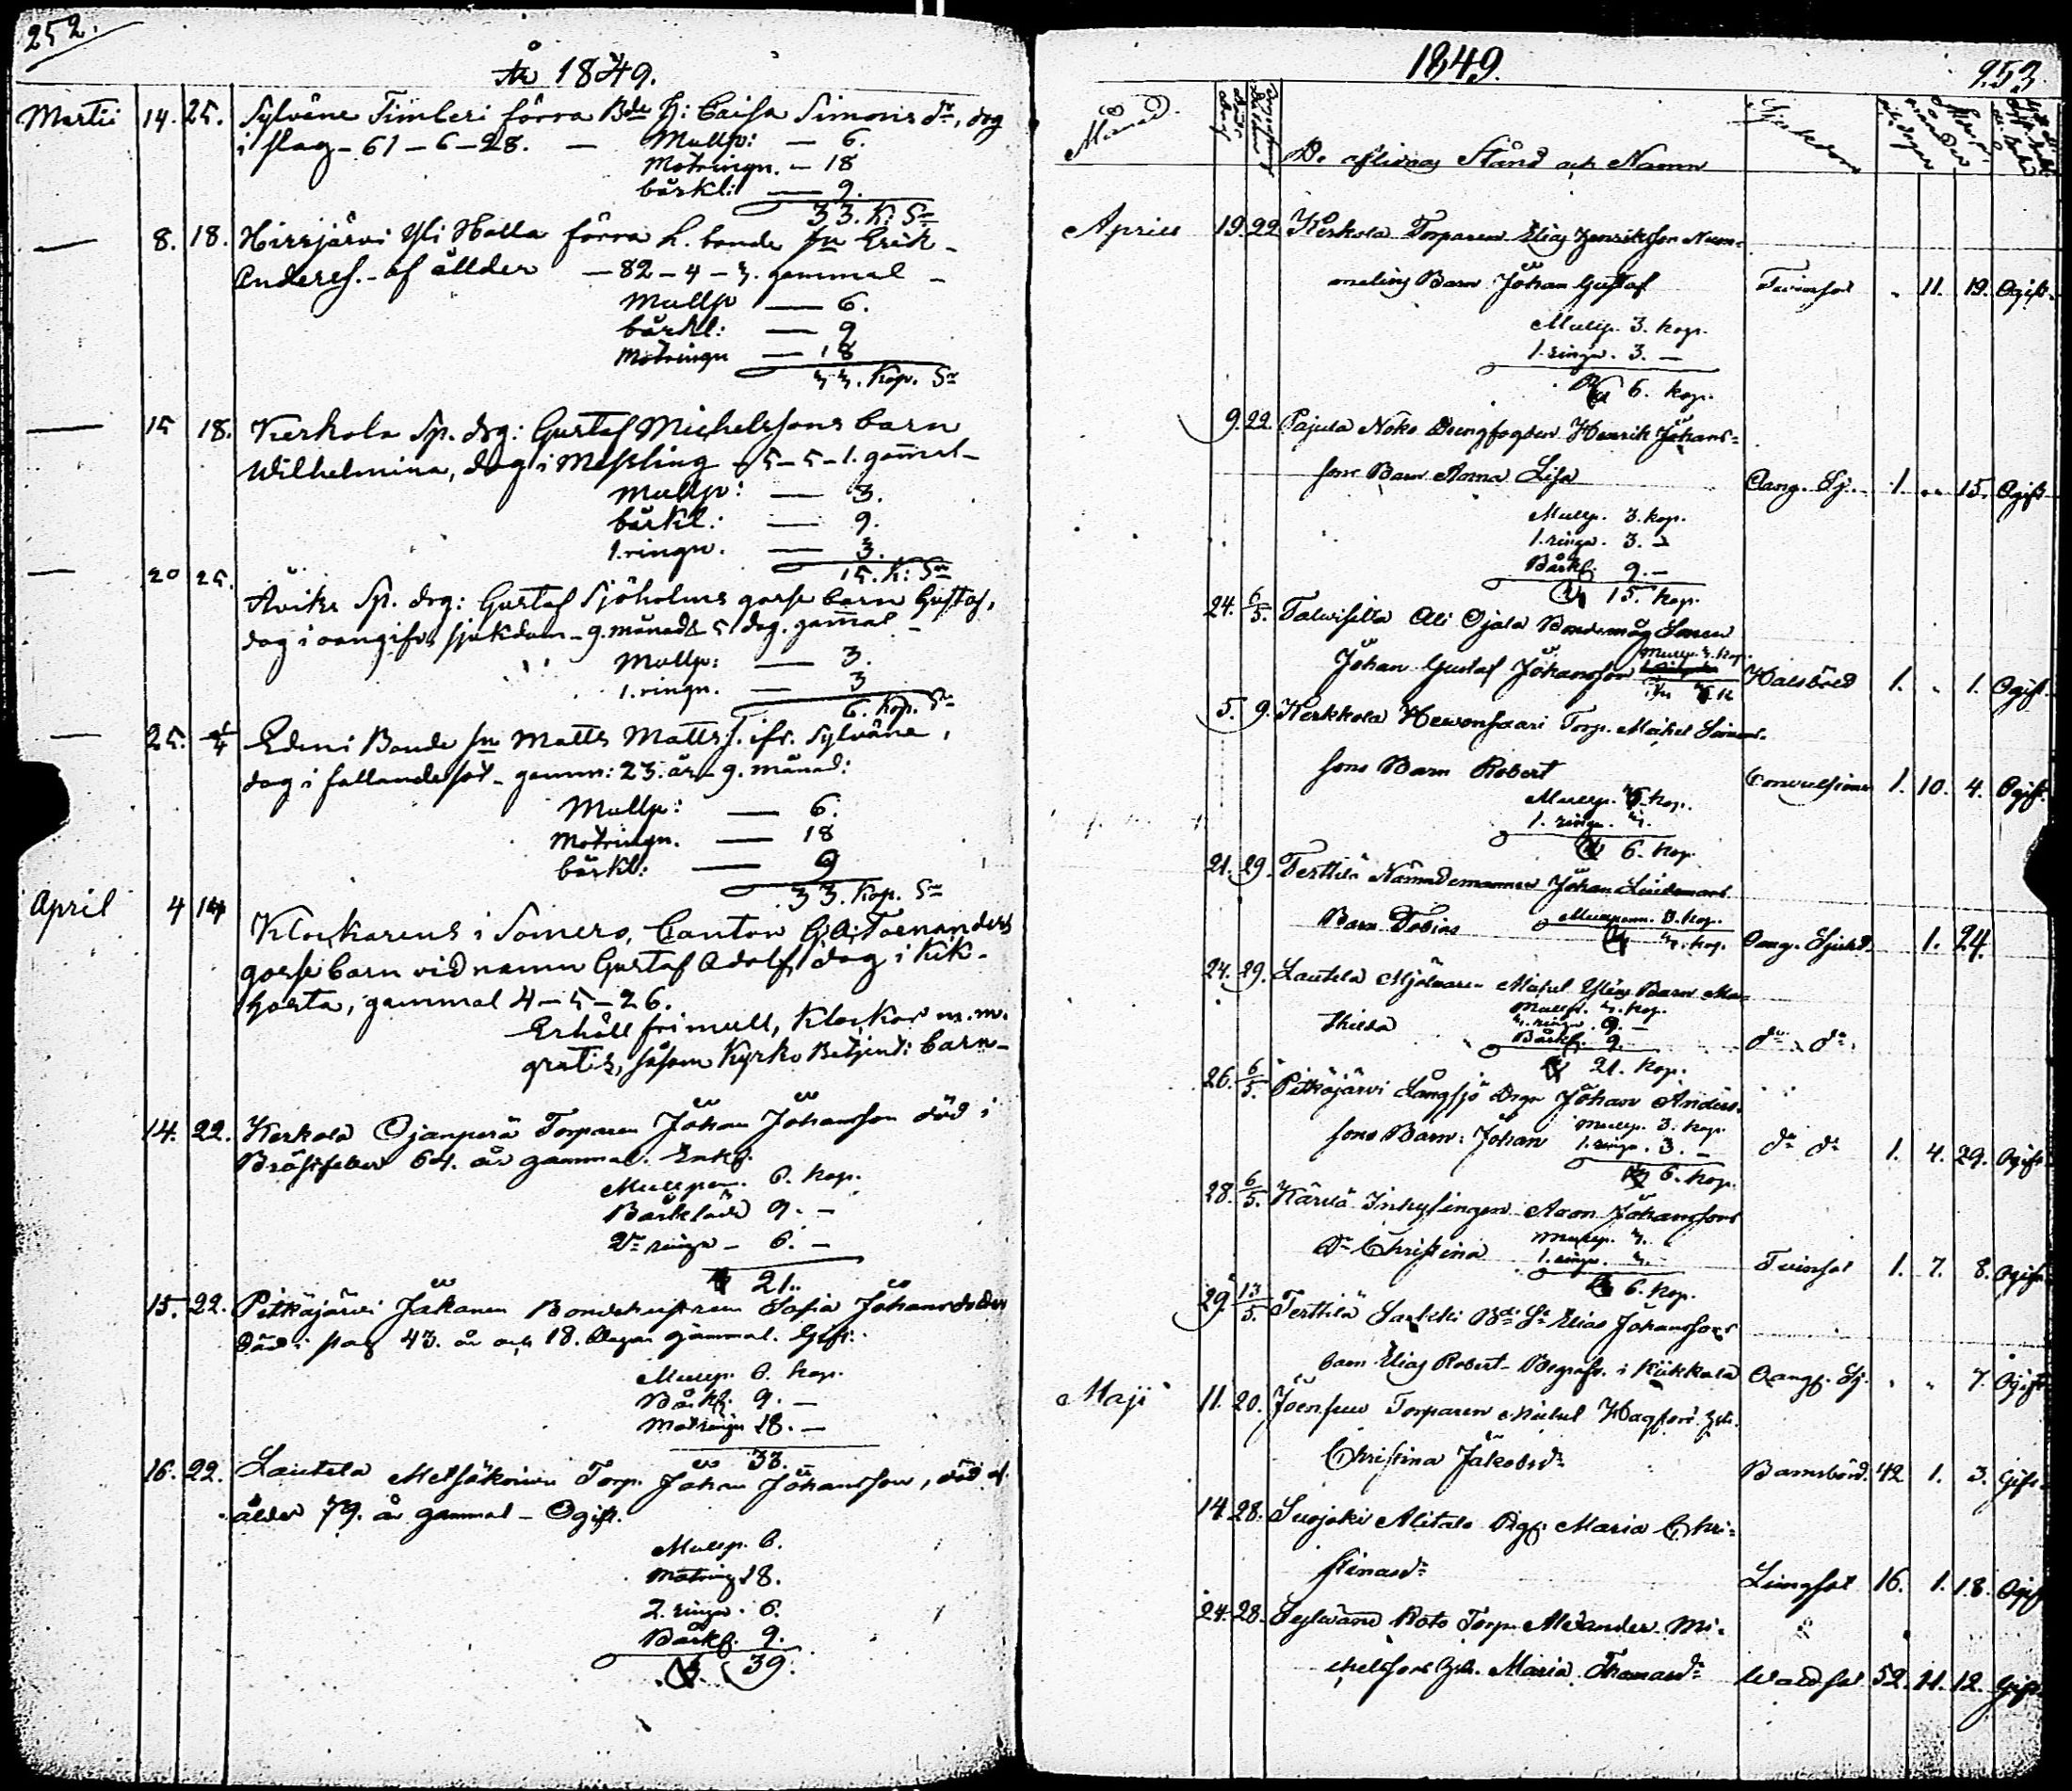 252.
År 1849.
Martii 14. 25. Sylväne Timleri förra Bde h: Caisa Simonsdr, dog
i slag - 61 - 6 - 28. — Mullp: — 6.
Motringn. — 18
bårkl: — 9.
33. K: Sr
— 8. 18. Hirsjärvi Yli Halla förra h. bonde sn Erik
Andersf. - af ållder — 82 - 4 - 3. gammal —
Mullp — 6.
bårkl: — 9
Motringn — 18
33. Kop. Sr
— 15 18. Kerkola Sp. drg: Gustaf Michelssons barn
Wilhelmina, dog i Messling - 5 - 5 - 1. gamal -
Mullp: — 3.
bårkl: — 9.
1. ringn. — 3.
15. K: Sr
— 20 25. Åviks Sp. drg: Gustaf Sjöholms gosse barn Gustaf,
dog i oangifven sjukdom - 9. månad & 5 dag. gamal -
Mullp: — 3.
1. ringn. — 3
6. Kop. Sr
— 25. 1/4 Edeni Bonde sn Matts Matts f. ifr. Sylväne,
dog i fallandesot - gamm: 23. år - 9. månad:
Mullp: — 6.
Motringn. — 18
bårkl: — 9
33. Kop. Sr
April 4 14 Klockarens i Somero, Cantor G. A. Toenanders
gosse barn vid namn Gustaf Adolf, dog i Kik-
hosta, gammal 4 - 5 - 26.
Erhöll fri mull, Klockor m. m.
gratis, såsom Kyrko Betjent: barn -
14. 22. Kerkola Ojanperä Torparen Johan Johansson död i
Bröstfeber 64. år gammal. Enkl.
Mullpen. 6. kop.
Bårkläde 9. —
2dr ringn — 6. —
21.
15. 22. Pitkäjärvi Jakanen Bondehustrun Sofia Johansdotter
Död i slag 43. år och 18. Dagar gammal. Gift.
Mullp. 6. Kop.
Bårkl. 9. —
Motringn 18. —
33.
16. 22. Lautela Metsäkoivu Torp. Johan Johansson, död af
ålder 79. år gammal - Ogift.
Mullp. 6.
Motring 18.
2. ringn. 6.
Bårkl. 9.
39.
1849.
253.
Månad. De aflidnas Stånd och Namn Sjukdom
April 19. 22. Kerkola Torparen Elias Henriksson Num-
melins Barn Johan Gustaf Tvinsot „ 11. 19. Ogift.
Mullp. 3. kop.
1. ringn. 3. —
6. kop.
9. 22. Pajula Noko Drengfogden Henrik Johans-
sons Barn Anna Lisa Oang. Sj. 1. „ 15. Ogift
Mullp. 3. kop.
1. ringn. 3. —
Bårkl. 9. —
15. kop.
24. 6/5. Talvisilta Ali Ojala Bondemåg Sonen
Johan Gustaf Johansson Mullp. 3. kop. Halsböld 1. „ 1. Ogift.
5. 9. Kerkkola Hevonsaari Torp. Mickel Simons-
sons Barn Robert Convulsioner 1. 10. 4. Ogift.
Mullp. 3. kop.
1. ringn. 3.
6. kop.
21. 29. Terttilä Nämndemannen Johan Lindemans
Barn Tobias Mullpenn. 3. kop. Oang. Sjukd. 1. 24.
3. kop.
24. 29. Lautela Mjölnaren Mickel Ylens Barn Ma-
thilda dr dr
Mullp. 3. kop.
3. ringn. 9. —
Bårkl. 9.
21. kop.
26. 6/5. Pitkäjärvi Långsjö Drgn Johan Anders-
sons Barn: Johan dr dr 1. 4. 29. Ogift
Mullp. 3. kop.
1. ringn. 3. —
6. kop.
28. 6/5. Härilä Inhysingen Aron Johanssons
Dr Christina Tvinsot 1. 7. 8. Ogift
Mullp. 3.
1. ringn. 3. —
6. kop.
29. 13/5. Terttilä Sarkki Bde Sn Elias Johanssons
barn Elias Robert - Begrafs. i Kiikkala Oangf. Sj. „ „ 7. Ogift
Maji 11. 20. Joensuu Torparen Mickel Hagfors h.
Christina Jakobsdr Barnsbörd. 42 1. 3. Gift.
14. 28. Suojoki Alitalo Pig. Maria Chri-
stinasdr Lungsot 16. 1. 18. Ogift
24. 28. Sylväne Koto Torp. Alexander Mi-
chelssons h. Maria Thomasdr Wattsot 52. 11. 12. Gift